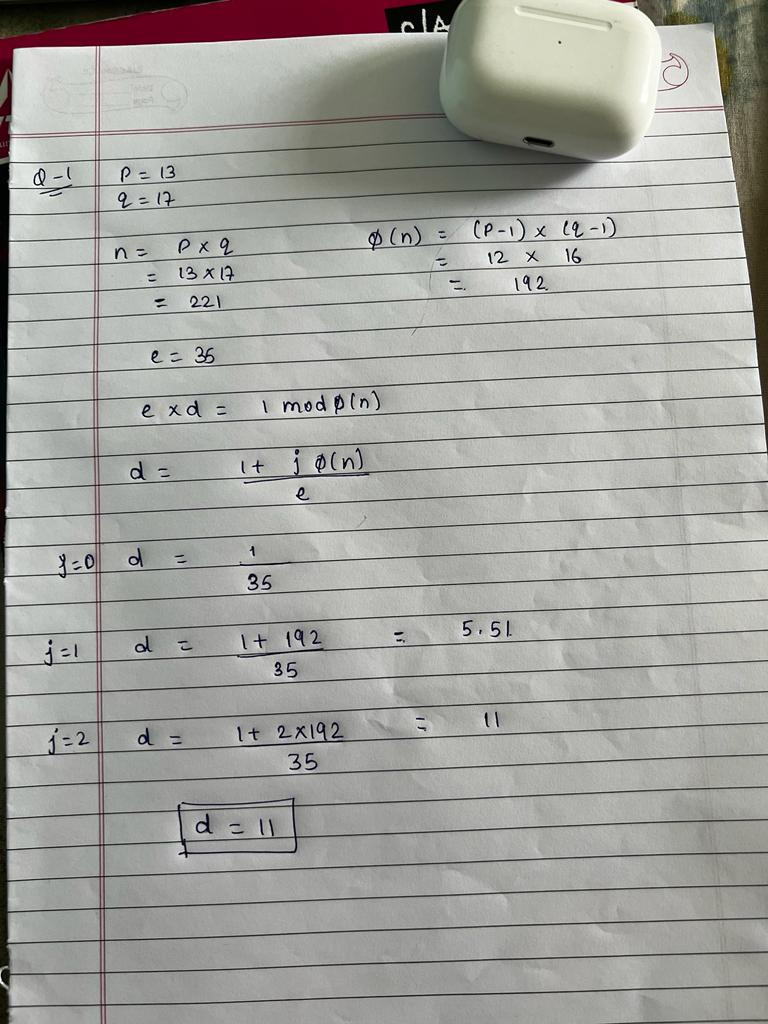 CLA
Q-1 P = 13
q = 17
n = P x q
= 13 x 17
= 221
ϕ(n) = (P-1) x (q-1)
= 12 x 16
= 192
e = 35
e x d = 1 mod ϕ(n)
d = 1 + j ϕ(n) / e
j=0 d = 1 / 35
j=1 d = 1 + 192 / 35 = 5.51
j=2 d = 1 + 2x192 / 35 = 11
d = 11